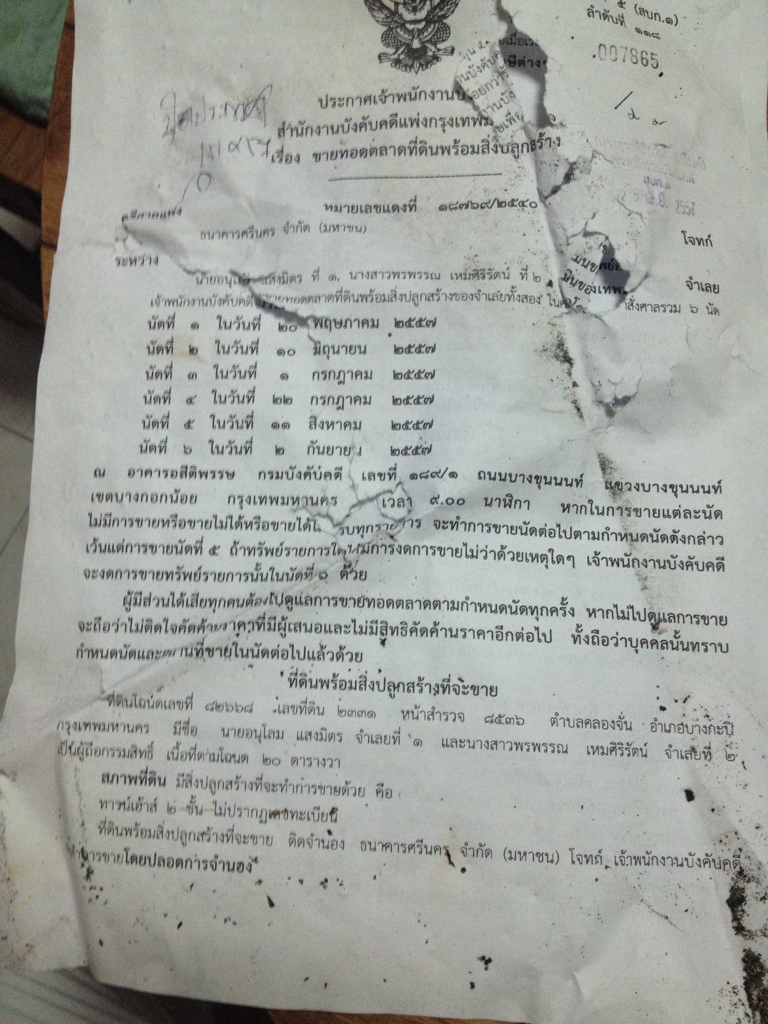 ๕ (สบก.๑)
ลำดับที่ ๑๑๘
007865
ประกาศเจ้าพนักงานบ
สำนักงานบังคับคดีแพ่งกรุงเทพม
เรื่อง ขายทอดตลาดที่ดินพร้อมสิ่งปลูกสร้าง
หมายเลขแดงที่ ๑๘๗๖๙/๒๕๔๐
ธนาคารศรีนคร จำกัด (มหาชน) โจทก์
ระหว่าง
แสงมิตร ที่ ๑, นางสาวพรพรรณ เหมศิริรัตน์ ที่ ๒ จำเลย
เจ้าพนักงานบังคับคดี ขายทอดตลาดที่ดินพร้อมสิ่งปลูกสร้างของจำเลยทั้งสอง สั่งศาลรวม ๖ นัด
นัดที่ ๑ ในวันที่ ๒๐ พฤษภาคม ๒๕๕๗
นัดที่ ๒ ในวันที่ ๑๐ มิถุนายน ๒๕๕๗
นัดที่ ๓ ในวันที่ ๑ กรกฎาคม ๒๕๕๗
นัดที่ ๔ ในวันที่ ๒๒ กรกฎาคม ๒๕๕๗
นัดที่ ๕ ในวันที่ ๑๑ สิงหาคม ๒๕๕๗
นัดที่ ๖ ในวันที่ ๒ กันยาย ๒๕๕๗
ณ อาคารอสีติพรรษ กรมบังคับคดี เลขที่ ๑๘๙/๑ ถนนบางขุนนนท์ แขวงบางขุนนนท์
เขตบางกอกน้อย กรุงเทพมหานคร เวลา ๙.๐๐ นาฬิกา หากในการขายแต่ละนัด
ไม่มีการขายหรือขายไม่ได้หรือขายได้ไ รบทุกราย าร จะทำการขายนัดต่อไปตามกำหนดนัดดังกล่าว
เว้นแต่การขายนัดที่ ๕ ถ้าทรัพย์รายการใดหมีการงดการขายไม่ว่าด้วยเหตุใดๆ เจ้าพนักงานบังคับคดี
จะงดการขายทรัพย์รายการนั้นในนัดที่ ๖ ด้วย
ผู้มีส่วนได้เสียทุกคนต้องไปดูแลการขายทอดตลาดตามกำหนดนัดทุกครั้ง หากไม่ไปดูแลการขาย
จะถือว่าไม่ติดใจคัดค้านราคาที่มีผู้เสนอและไม่มีสิทธิคัดค้านราคาอีกต่อไป ทั้งถือว่าบุคคลนั้นทราบ
กำหนดนัดและสถานที่ขายในนัดต่อไปแล้วด้วย
ที่ดินพร้อมสิ่งปลูกสร้างที่จะขาย
ที่ดินโฉนดเลขที่ ๘๒๖๖๘ เลขที่ดิน ๒๓๓๑ หน้าสำรวจ ๘๕๓๖ ตำบลคลองจั่น อำเภอบางกะปิ
กรุงเทพมหานคร มีชื่อ นายอนุโลม แสงมิตร จำเลยที่ ๑ และนางสาวพรพรรณ เหมศิริรัตน์ จำเลยที่ ๒
เป็นผู้ถือกรรมสิทธิ์ เนื้อที่ตามโฉนด ๒๐ ตารางวา
สภาพที่ดิน มีสิ่งปลูกสร้างที่จะทำการขายด้วย คือ
ทาวน์เฮ้าส์ ๒ ชั้น ไม่ปรากฏเลขทะเบียน
ที่ดินพร้อมสิ่งปลูกสร้างที่จะขาย ติดจำนอง ธนาคารศรีนคร จำกัด (มหาชน) โจทก์ เจ้าพนักงานบังคับคดี
ทำการขายโดยปลอดการจำนอง